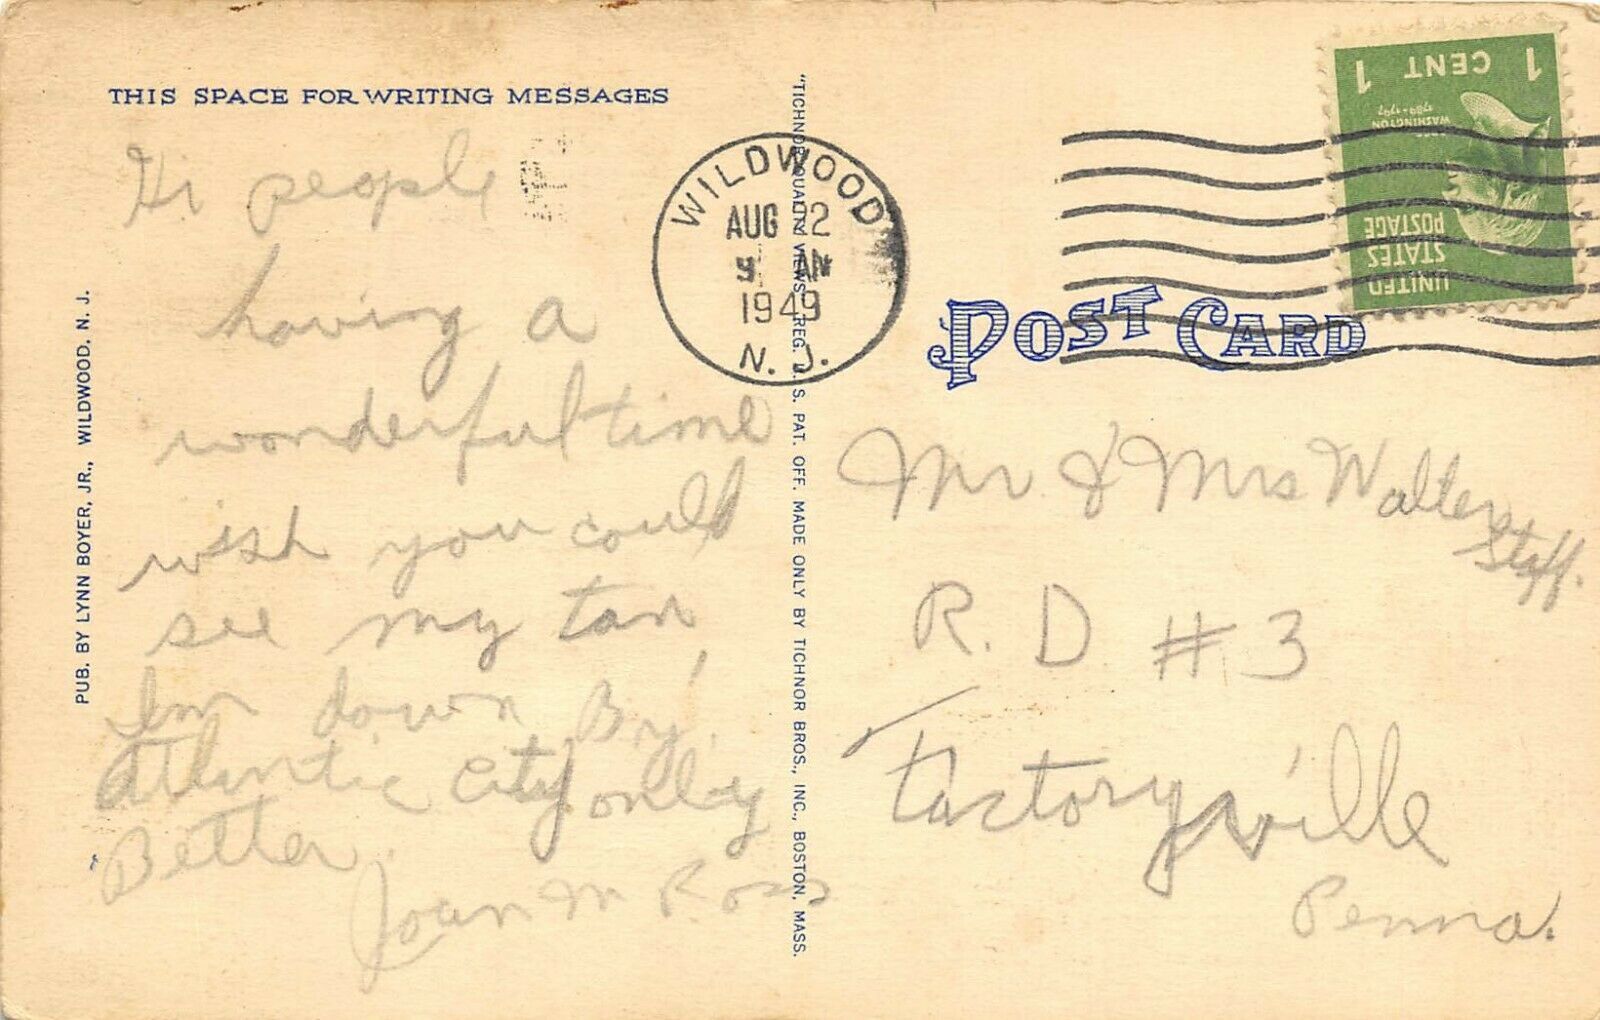 THIS SPACE FOR WRITING MESSAGES
Hi people
having a
wonderful time
wish you could
see my tan
Im down By
Atlantic City only
Better.
Joan M Ross
PUB. BY LYNN BOYER, JR., WILDWOOD, N. J.
"TICHNOR QUALITY VIEWS," REG. U. S. PAT. OFF. MADE ONLY BY TICHNOR BROS., INC., BOSTON, MASS.
WILDWOOD
AUG 22
9 AM
1949
N. J.
1 CENT 1
WASHINGTON
1789-1797
UNITED
STATES
POSTAGE
POST CARD
Mr & Mrs Walter
Staff.
R. D # 3
Factoryville
Penna.